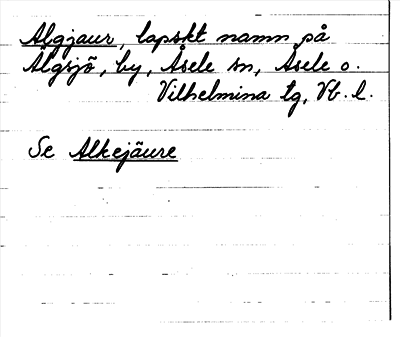 Algjaur, lapskt namn på
Älgsjö, by, Åsele sn, Åsele o.
Vilhelmina tg, Vb. l.
Se Alkejäure